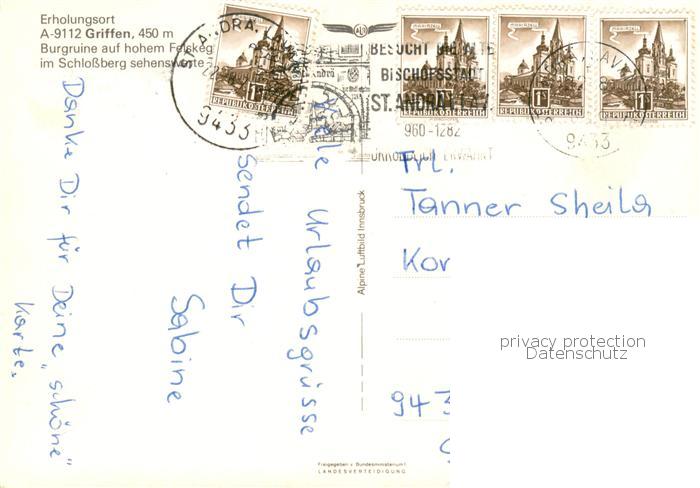 Erholungsort
A-9112 Griffen, 450 m
Burgruine auf hohem Felskeg
im Schloßberg sehenswerte
ST. ANDRÄ
9433
BESUCHT DIE ALTE
BISCHOFSSTADT
ST. ANDRÄ
960-1282
URKUNDLICH ERWÄHNT
9433
MARIAZELL
1S
REPUBLIK ÖSTERREICH
MARIAZELL
1S
REPUBLIK ÖSTERREICH
MARIAZELL
1S
REPUBLIK ÖSTERREICH
MARIAZELL
1S
REPUBLIK ÖSTERREICH
Viele Urlaubsgrüsse
sendet Dir
Sabine
Danke Dir für Deine "schöne"
Karte.
Alpine Luftbild Innsbruck
Frl.
Tanner Sheila
Kor
943
privacy protection
Datenschutz
Freigegeben v. Bundesministerium f.
LANDESVERTEIDIGUNG